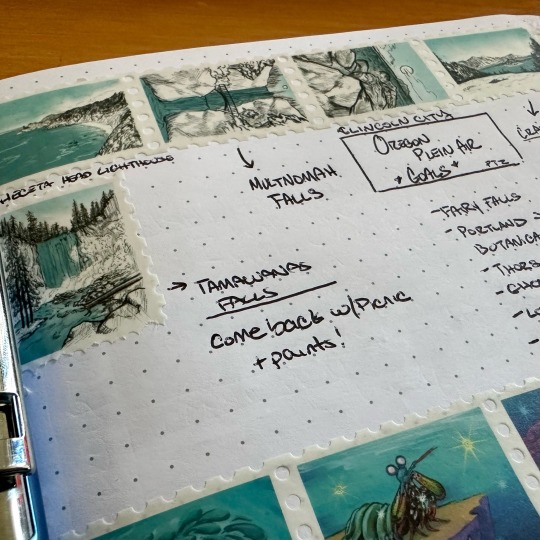 HECETA HEAD LIGHTHOUSE
MULTNOMAH
FALLS
LINCOLN CITY
OREGON
PLEIN AIR
*GOALS*
PT 2
TAMAWANAS
FALLS
come back w/ PICNIC
+ paints!
-FAIRY FALLS
-PORTLAND
BOTANICA